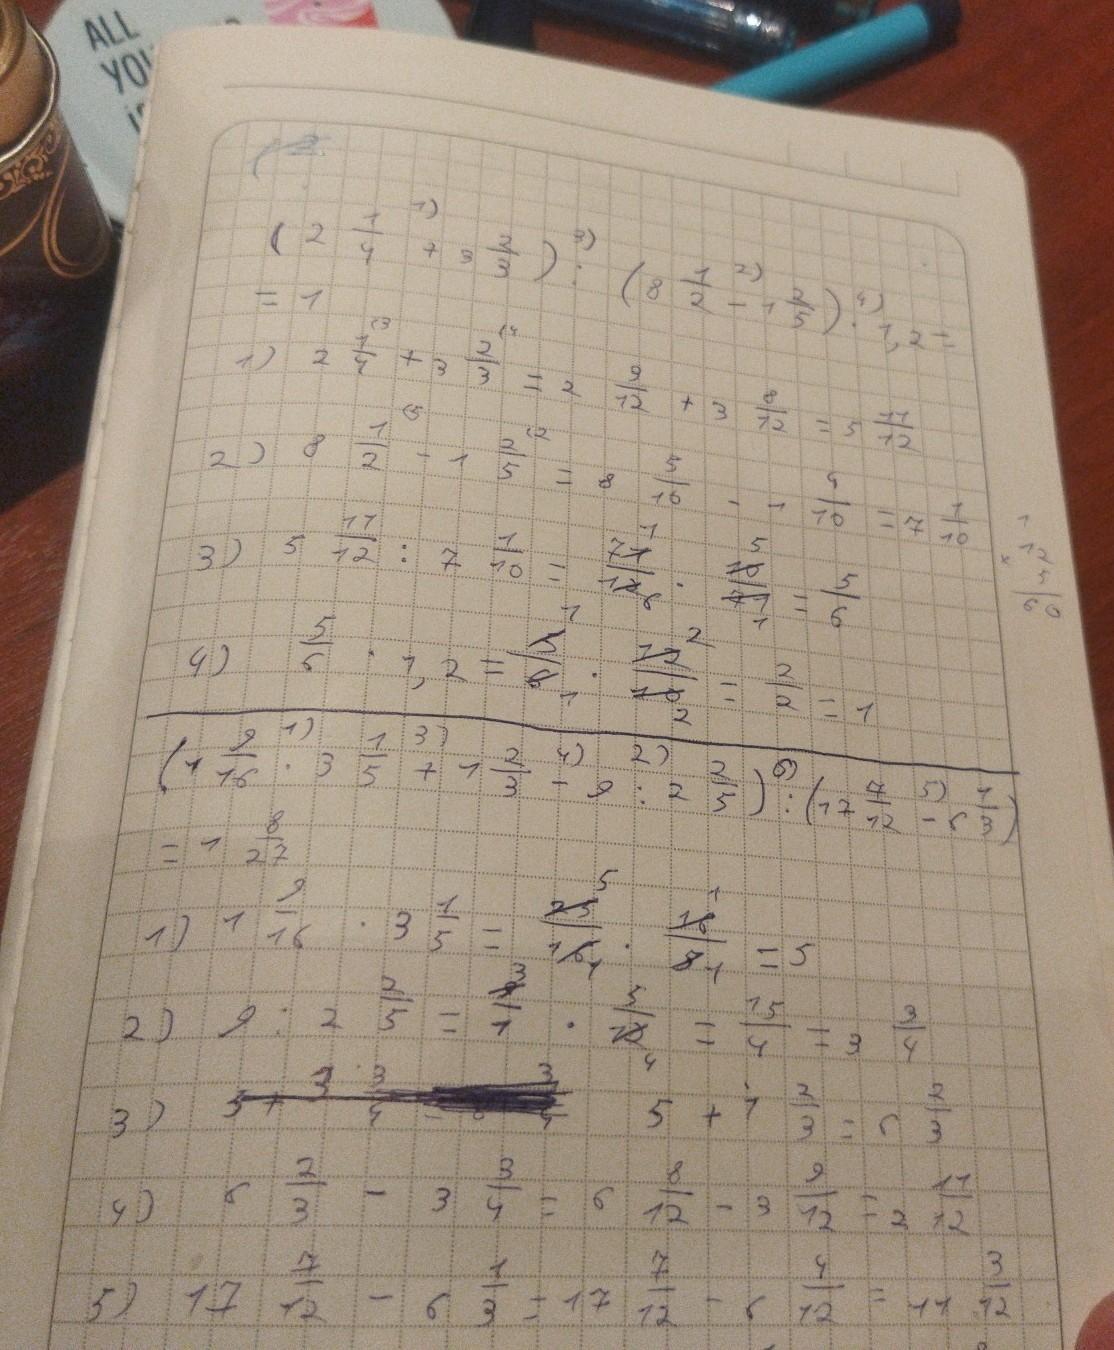 ALL
YOU
(2 1/4 + 3 2/3) : (8 1/2 - 1 2/5) · 1,2 =
= 1
1) 2 1/4 + 3 2/3 = 2 9/12 + 3 8/12 = 5 11/12
2) 8 1/2 - 1 2/5 = 8 5/10 - 1 4/10 = 7 1/10
3) 5 11/12 : 7 1/10 = 71/12 · 10/71 = 5/6
1
12
× 5
60
4) 5/6 · 1,2 = 5/6 · 12/10 = 2/2 = 1
(1 9/16 · 3 1/5 + 1 2/3 - 9 : 2 2/5) : (17 7/12 - 6 1/3)
= 1 8/27
1) 1 9/16 · 3 1/5 = 25/16 · 16/5 = 5
2) 9 : 2 2/5 = 9/1 · 5/12 = 15/4 = 3 3/4
3) 5 + 1 2/3 = 6 2/3
4) 6 2/3 - 3 3/4 = 6 8/12 - 3 9/12 = 2 11/12
5) 17 7/12 - 6 1/3 = 17 7/12 - 6 4/12 = 11 3/12